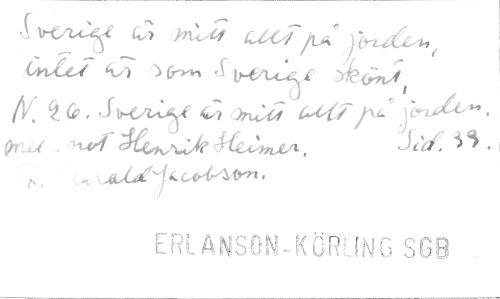 Sverige är mitt allt på jorden,
intet är som Sverige skönt,
N. 26. Sverige är mitt allt på jorden.
med not Henrik Heimer. Sid. 39.
Harald Jacobson.
ERLANSON-KÖRLING SGB